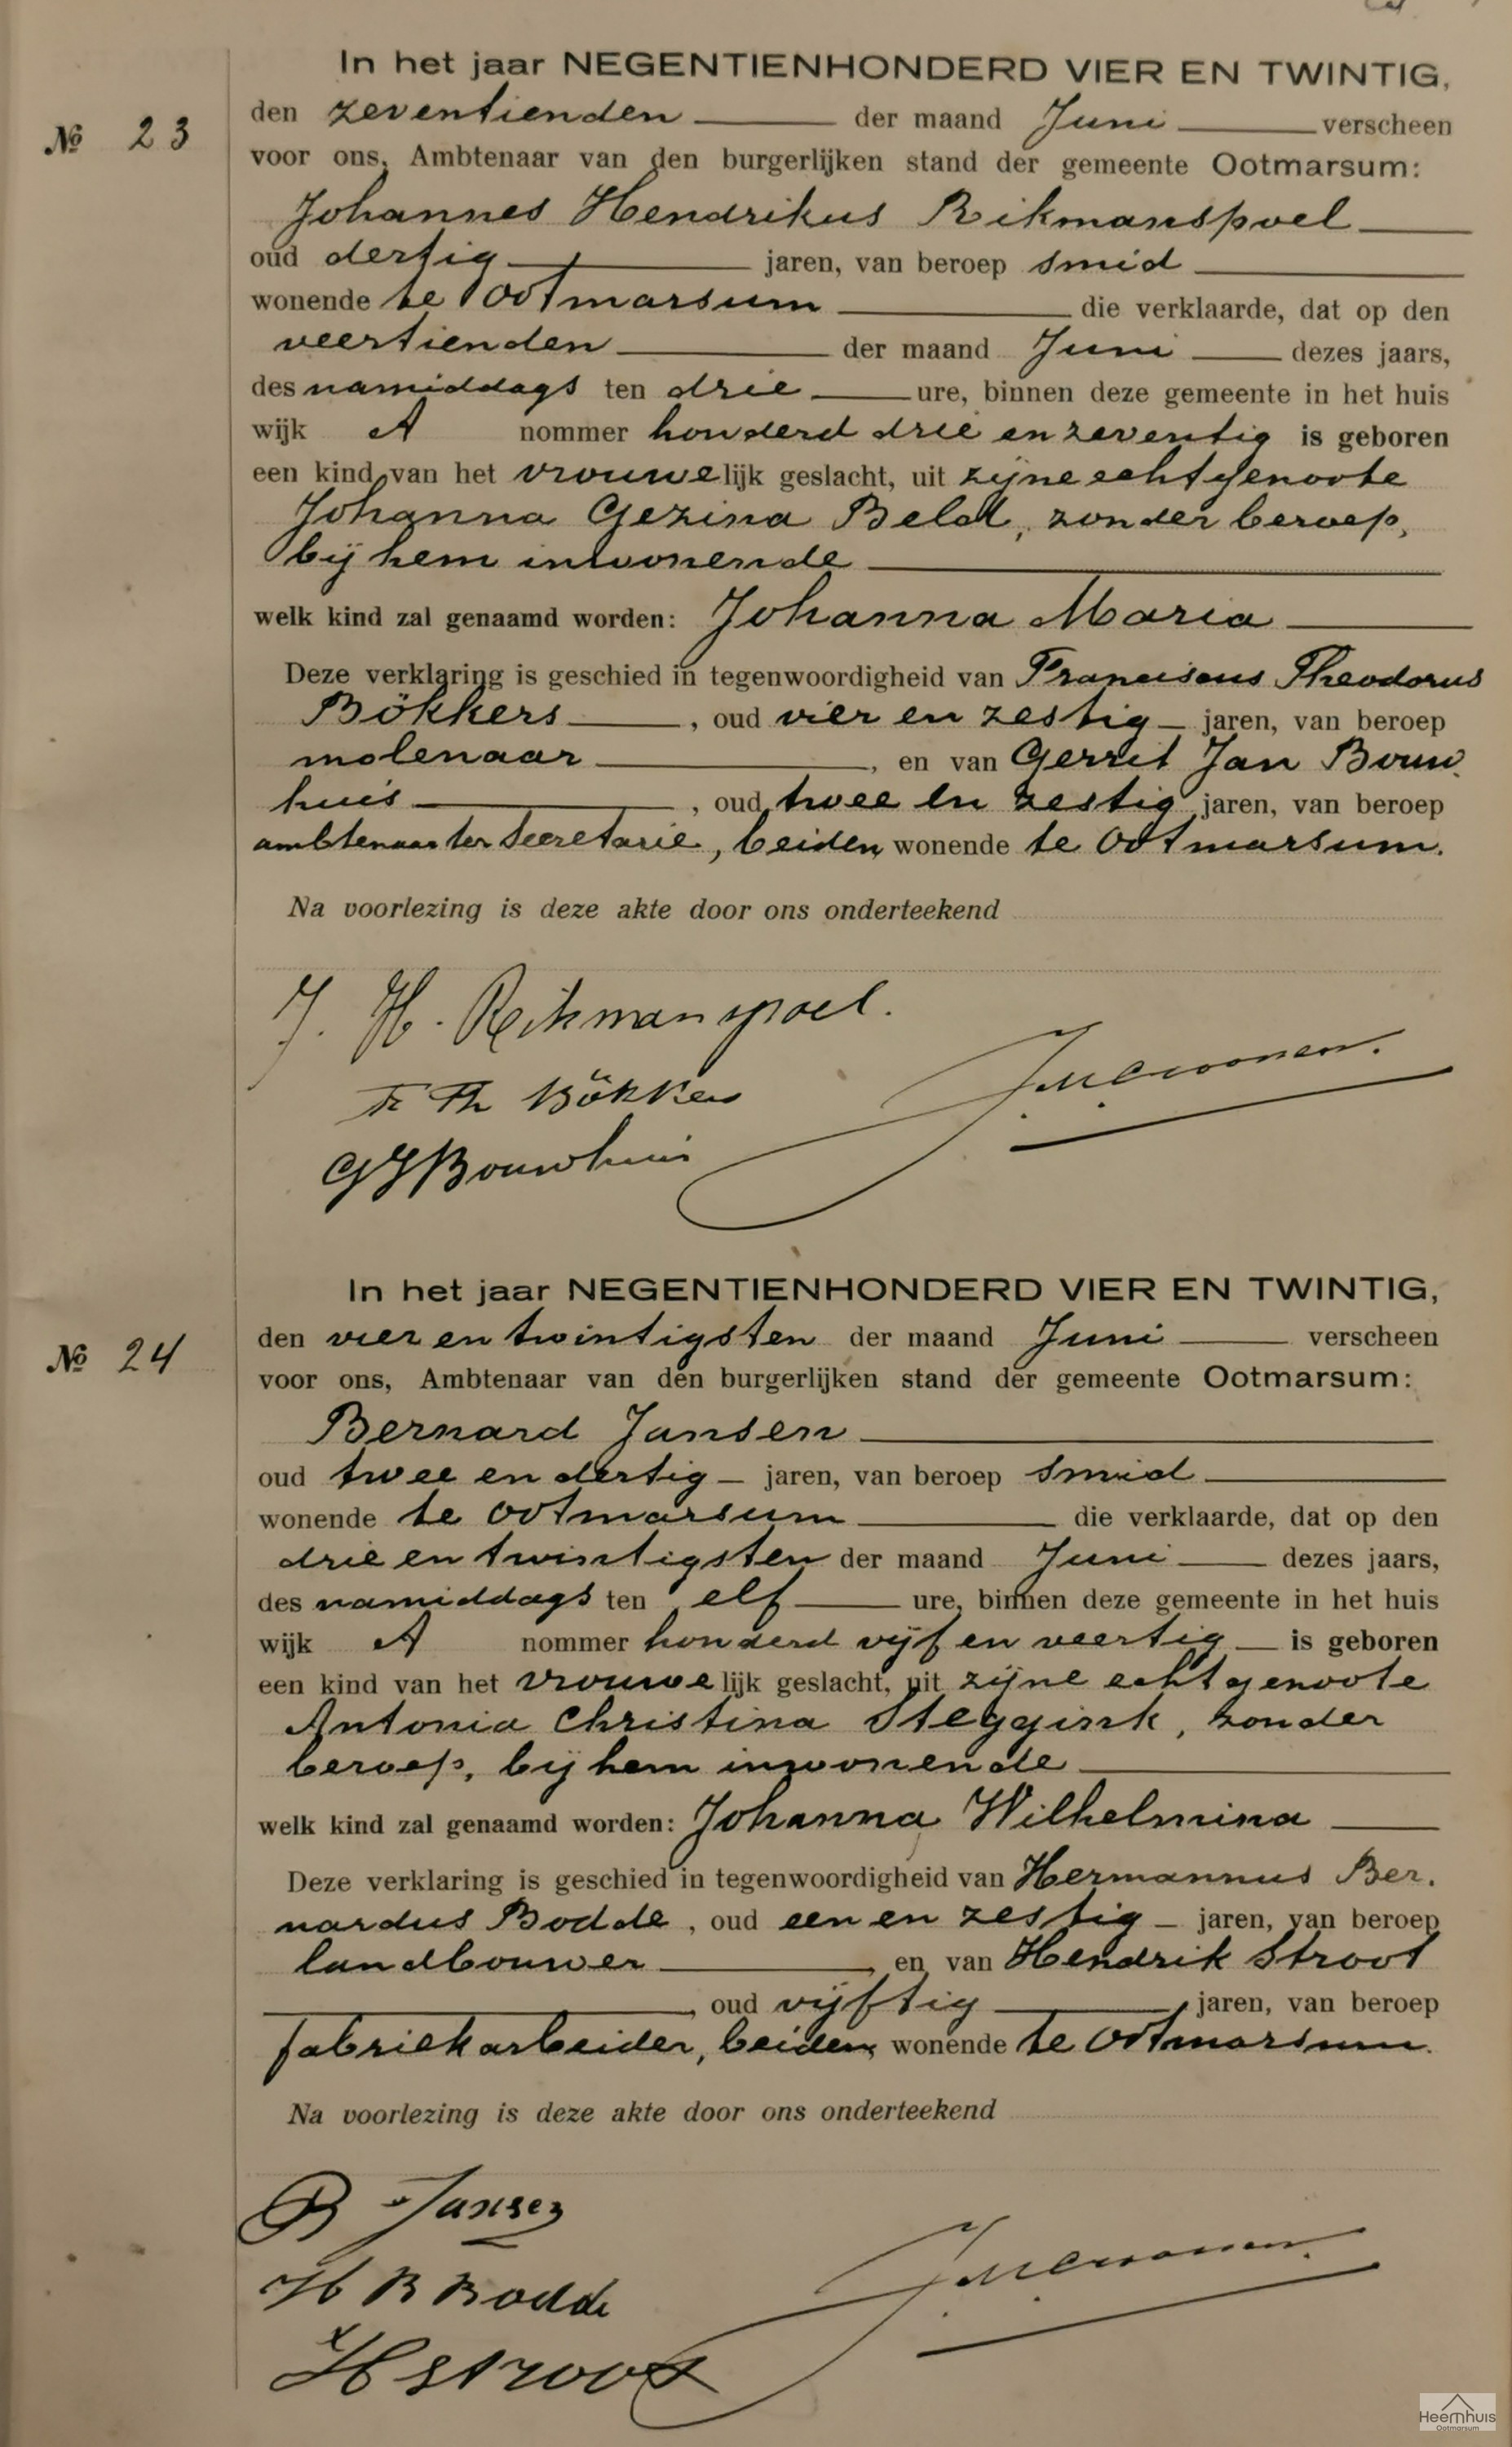 In het jaar NEGENTIENHONDERD VIER EN TWINTIG,
№ 23
den zeventienden der maand Juni verscheen
voor ons, Ambtenaar van den burgerlijken stand der gemeente Ootmarsum:
Johannes Hendrikus Rikmanspoel
oud dertig jaren, van beroep smid
wonende te Ootmarsum die verklaarde, dat op den
veertienden der maand Juni dezes jaars,
des namiddags ten drie ure, binnen deze gemeente in het huis
wijk A nommer honderd drie en zeventig is geboren
een kind van het vrouwelijk geslacht, uit zijne echtgenoote
Johanna Gezina Belt, zonder beroep,
bij hem inwonende
welk kind zal genaamd worden: Johanna Maria
Deze verklaring is geschied in tegenwoordigheid van Franciscus Theodorus
Bökkers, oud vier en zestig jaren, van beroep
molenaar, en van Gerrit Jan Bouw
huis, oud twee en zestig jaren, van beroep
ambtenaar ter Secretarie, beiden wonende te Ootmarsum.
Na voorlezing is deze akte door ons onderteekend
J. H. Rikmanspoel.
F Th Bökkers
G J Bouwhuis
In het jaar NEGENTIENHONDERD VIER EN TWINTIG,
№ 24
den vier en twintigsten der maand Juni verscheen
voor ons, Ambtenaar van den burgerlijken stand der gemeente Ootmarsum:
Bernard Jansen
oud twee en dertig jaren, van beroep smid
wonende te Ootmarsum die verklaarde, dat op den
drie en twintigsten der maand Juni dezes jaars,
des namiddags ten elf ure, binnen deze gemeente in het huis
wijk A nommer honderd vijf en veertig is geboren
een kind van het vrouwelijk geslacht, uit zijne echtgenoote
Antonia Christina Steggink, zonder
beroep, bij hem inwonende
welk kind zal genaamd worden: Johanna Wilhelmina
Deze verklaring is geschied in tegenwoordigheid van Hermannus Ber.
nardus Bodde, oud een en zestig jaren, van beroep
landbouwer, en van Hendrik Stroot
, oud vijftig, jaren, van beroep
fabriekarbeider, beiden wonende te Ootmarsum.
Na voorlezing is deze akte door ons onderteekend
B Jansen
H B Bodde
H Stroot
Heemhuis
Ootmarsum